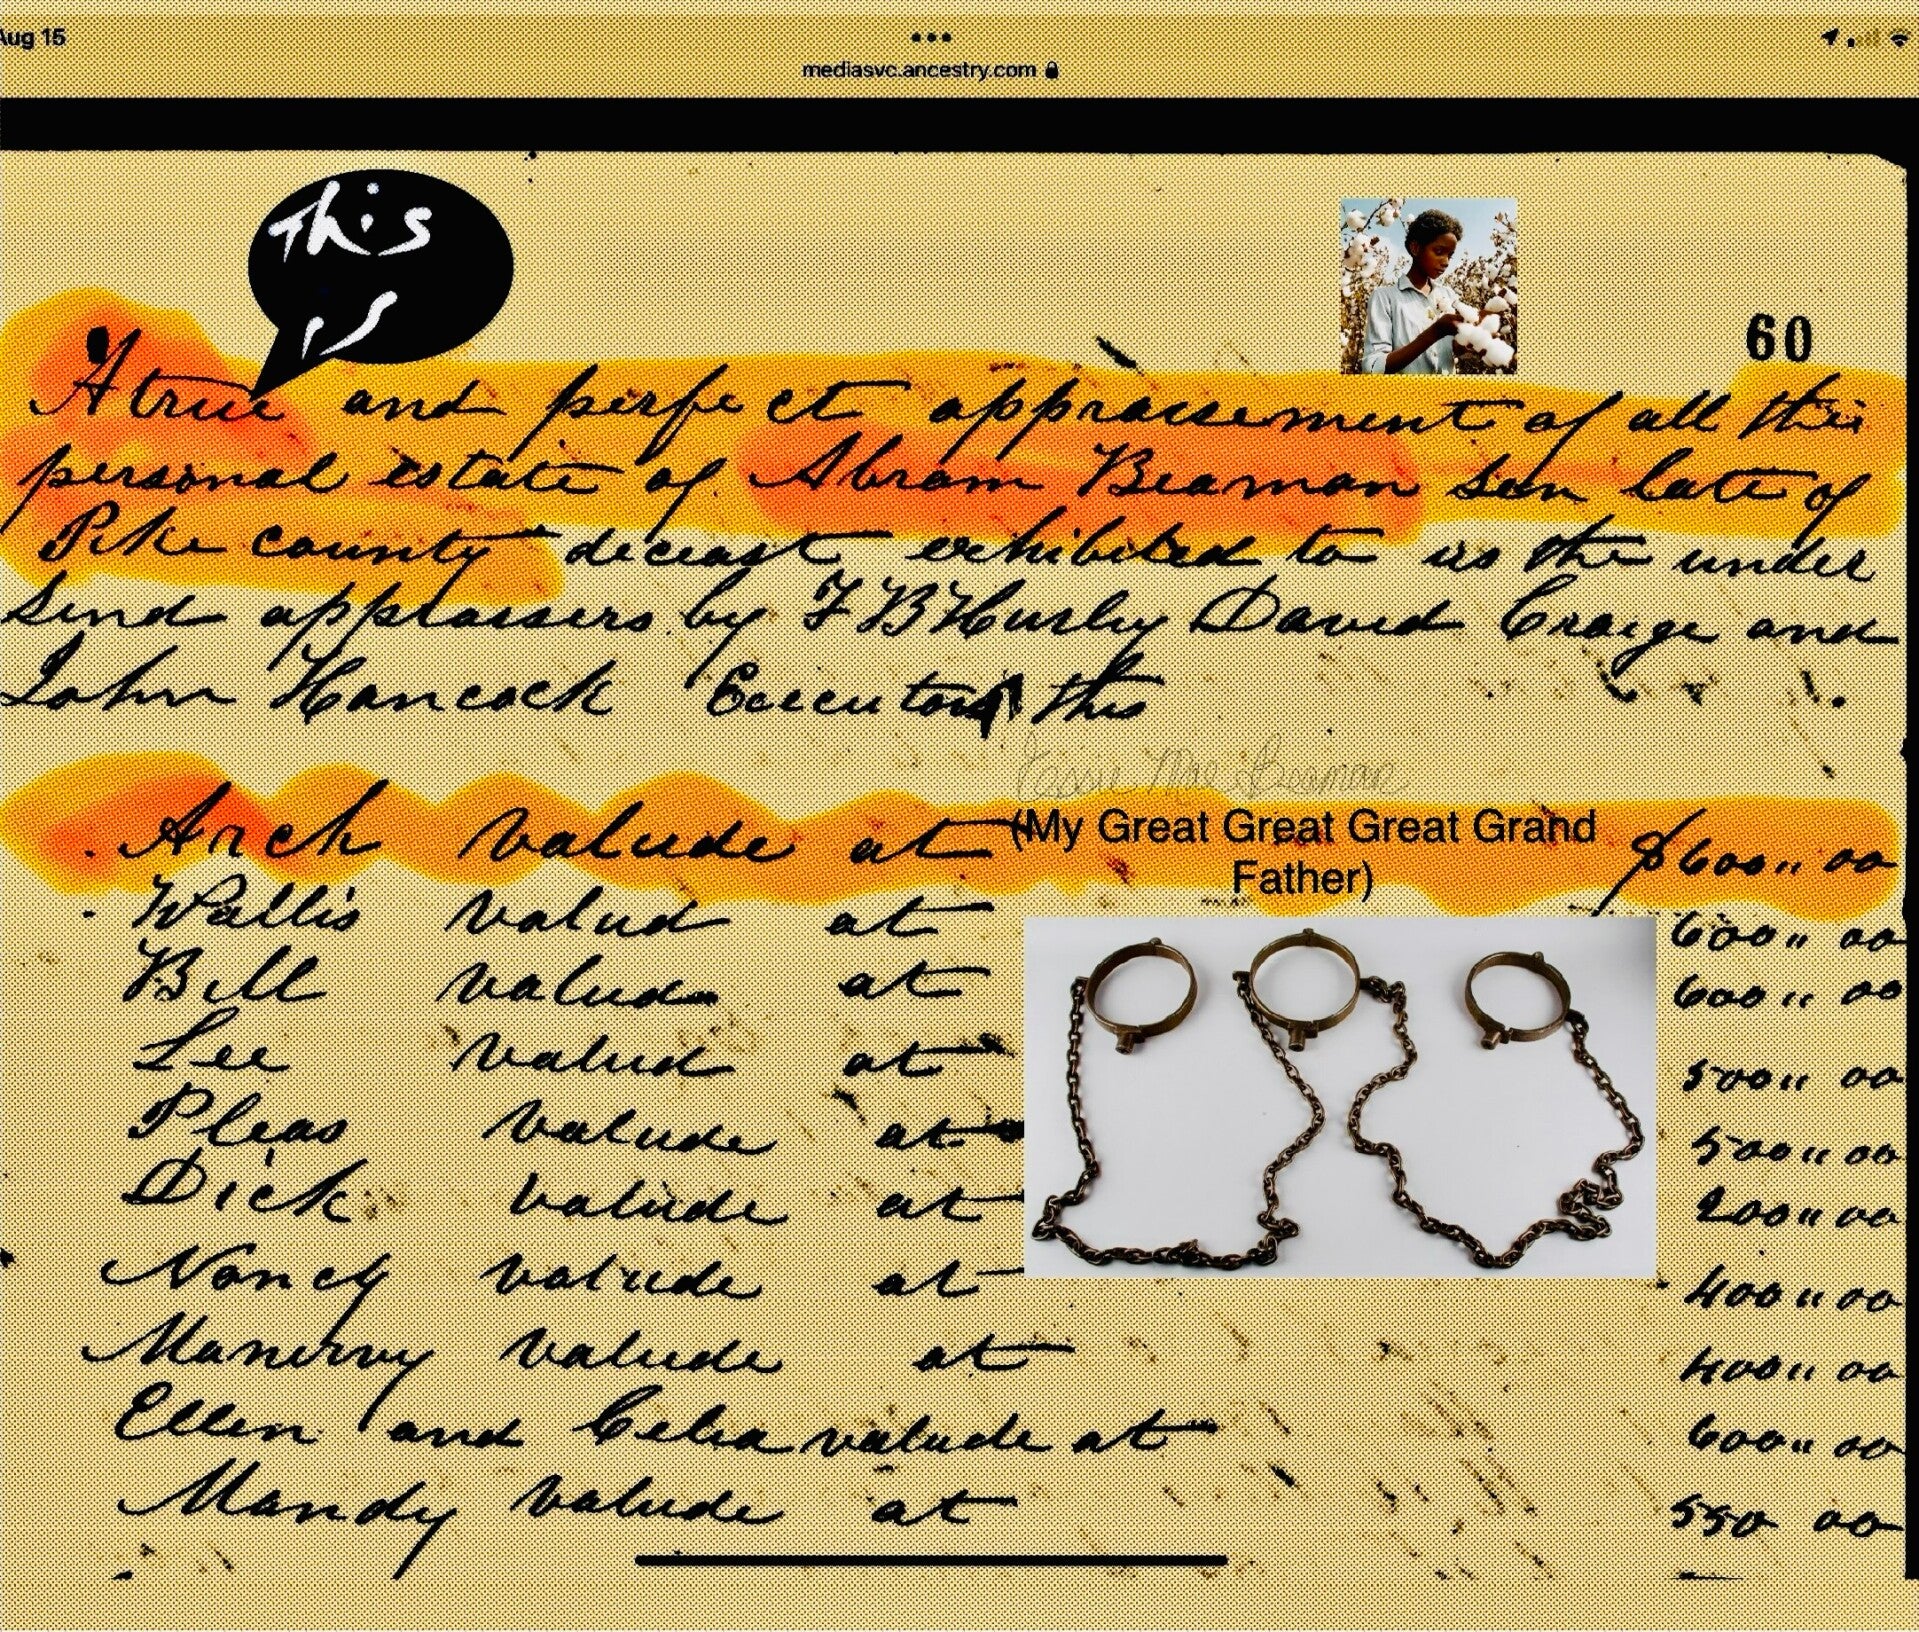 Aug 15
mediasvc.ancestry.com
This
is
60
A true and perfect appraisement of all the
personal estate of Abram Beaman sen late of
Pike county deceast exhibited to us the under
sind appraisers by F B Hursby David Craige and
John Hancock Executors this
Essie Mae Beaman
Arch valude at (My Great Great Great Grand $600,, 00
Father)
Wallis valud at 600,, 00
Bill valud at 600,, 00
Lee valud at 500,, 00
Pleas valude at 500,, 00
Dick valude at 200,, 00
Nancy valude at 400,, 00
Manervy valude at 400,, 00
Ellen and Celia valude at 600,, 00
Mandy valude at 550 00